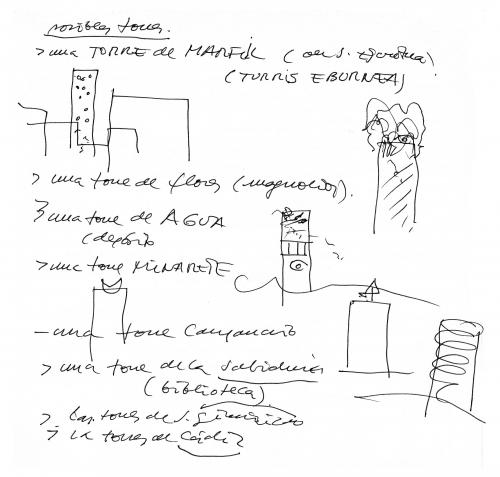 posibles torres.
> una TORRE de MARFIL (
(TURRIS EBURNEA)
> una torre de flores (magnolios).
> una torre de AGUA
(depósito
> una torre MINARETE
- una torre Campanario
> una torre de la Sabiduría
(biblioteca)
> las torres de S. Gimignano
> la torres de Cádiz